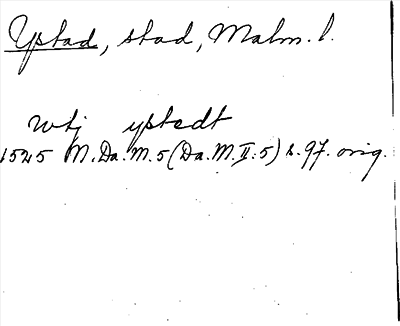 Ystad, stad, Malm. l.
wtj ystedt
1525 M.Da.M.5 (Da.M.II:5) s.97. orig.